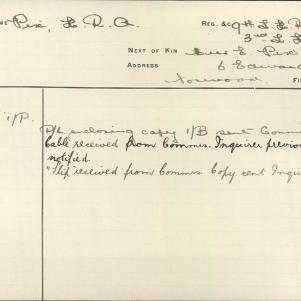 Pix, L. R. A. REG. &c 9th L.
3rd L.
NEXT OF KIN E. Pix
ADDRESS 6 Edward
Norwood
1/P. enclosing copy 1/B sent Comm
Cable received from Commrs. Inquirer previou
notified.
"Slip" received from Commrs Copy sent Inqui